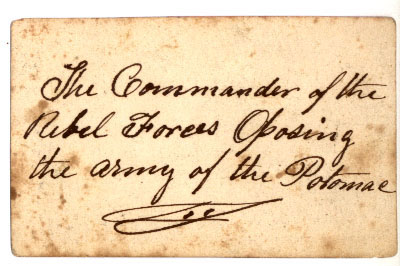 The Commander of the
Rebel Forces Oposing
the army of the Potomac